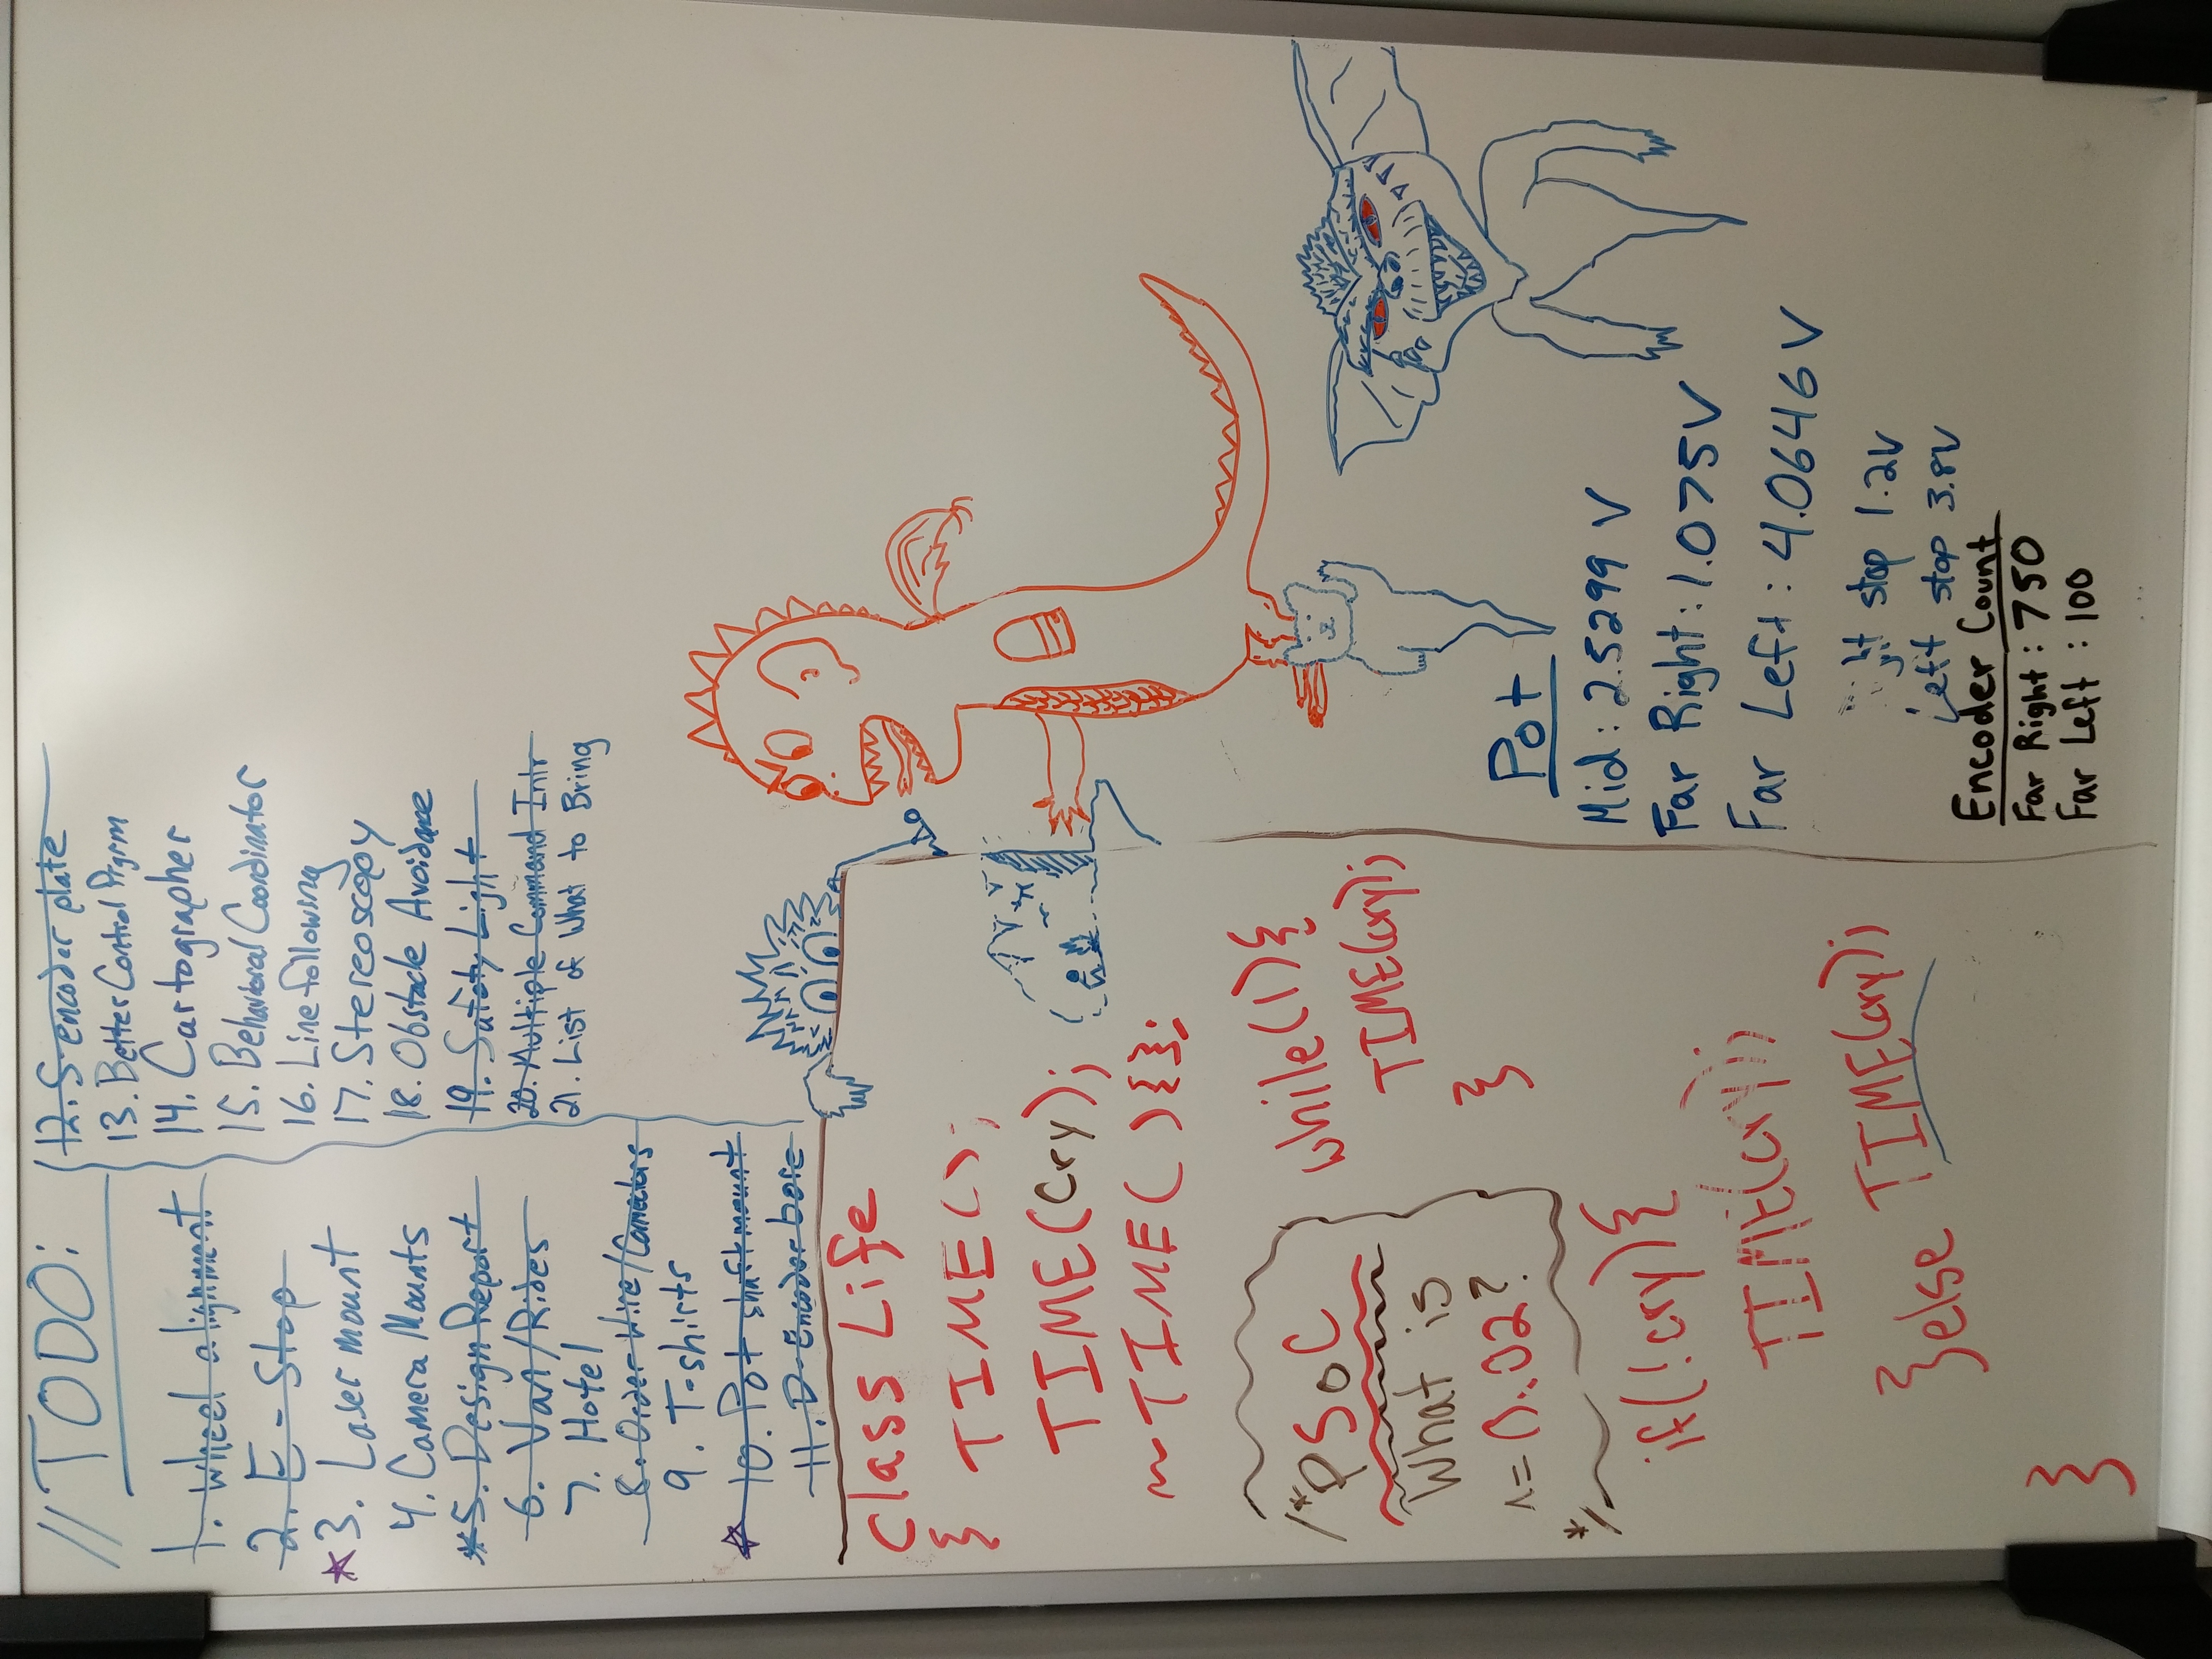 // TODO:
1. Wheel alignment
2. E-Stop
3. Laser mount
4. Camera Mounts
*5. Design Report
6. Van/Rides
7. Hotel
8. Order Wire/Connectors
9. T-shirts
10. Pot shaft mount
11. D-Encoder bore
12. S-encoder plate
13. Better Control Prgrm
14. Cartographer
15. Behavioral Coordinator
16. Line following
17. Stereoscopy
18. Obstacle Avoidance
19. Safety Light
20. Multiple Command Intr
21. List of What to Bring
class Life
{ TIME();
TIME(Cry);
~TIME(){};
/*PSoC
What is
=0.02?
*/
while(1){
TIME(cry);
}
if(!cry){
TIME(cry);
}else TIME(cry);
}
Pot
Mid: 2.5299 V
Far Right: 1.075V
Far Left: 4.0646 V
stop 1.2V
Left stop 3.8V
Encoder Count
Far Right: 750
Far Left: 100